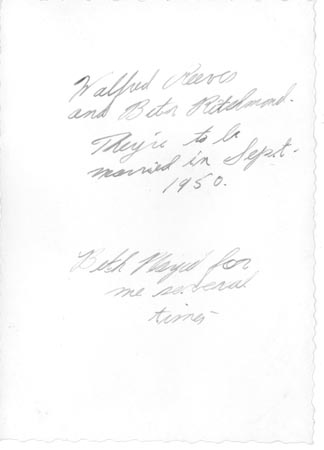 Walfred Reeves
and Beth
They're to be
married in Sept.
1950.
Beth Played for
me several
times